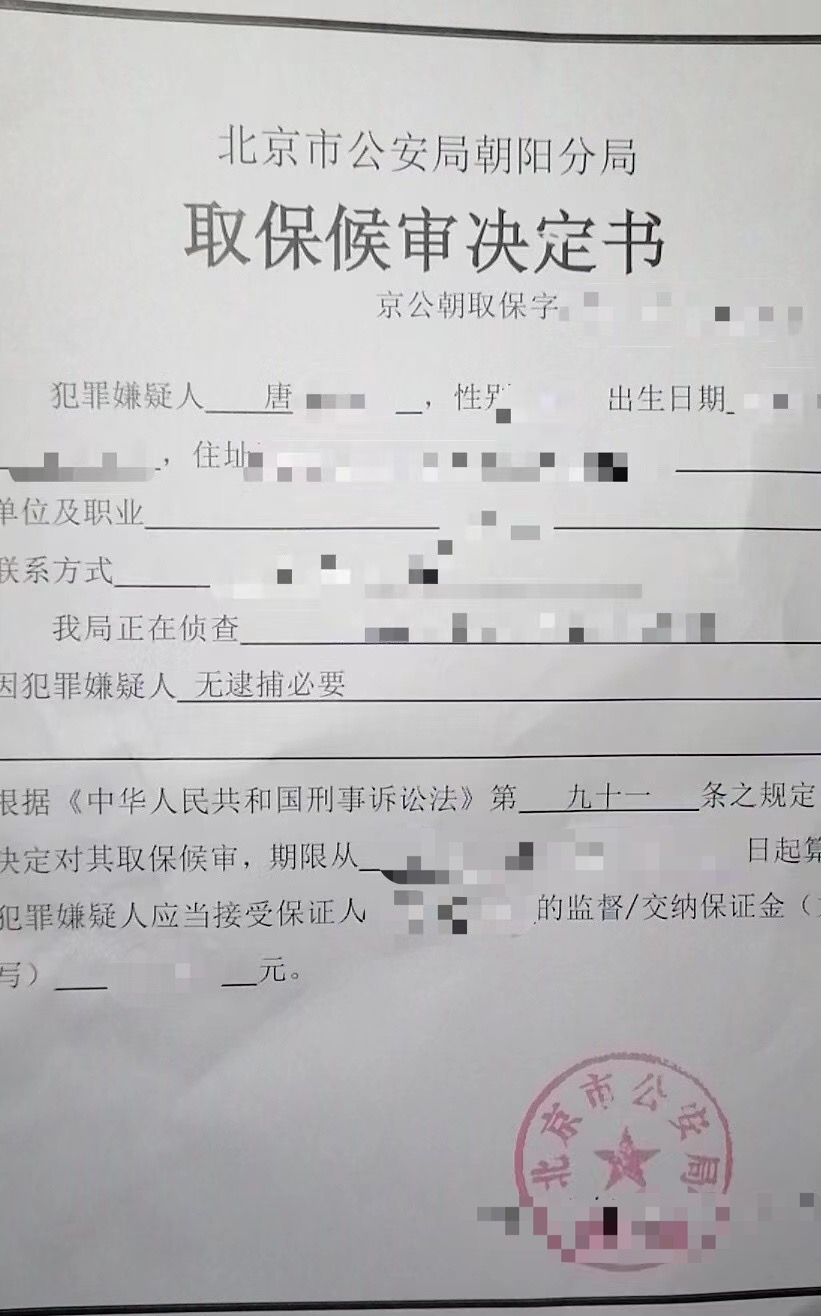 北京市公安局朝阳分局
取保候审决定书
京公朝取保字
犯罪嫌疑人 唐 ，性别 出生日期
，住址
单位及职业
联系方式
我局正在侦查
因犯罪嫌疑人 无逮捕必要
根据《中华人民共和国刑事诉讼法》第 九十一 条之规定
决定对其取保候审，期限从 日起算
犯罪嫌疑人应当接受保证人 的监督/交纳保证金（
写） 元。
北京市公安局